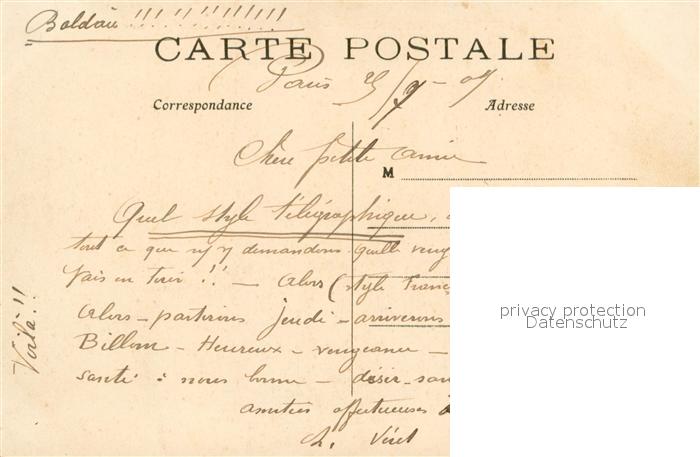 Baldaü !!! !! !!!!!!!
CARTE POSTALE
Paris 25/7-07
Correspondance
Adresse
Chère petite amie
M
Quel style télégraphique,
tout ce que
demandons quelle veng
Vais en tirer !! — Alors (style Franç
Alors — partirons jeudi — arriverons
Billom — Heureux — vengeance —
santé : nous bonne — désir — san
amitiés affectueuses à
Ch. Véret
Voilà !!
privacy protection
Datenschutz